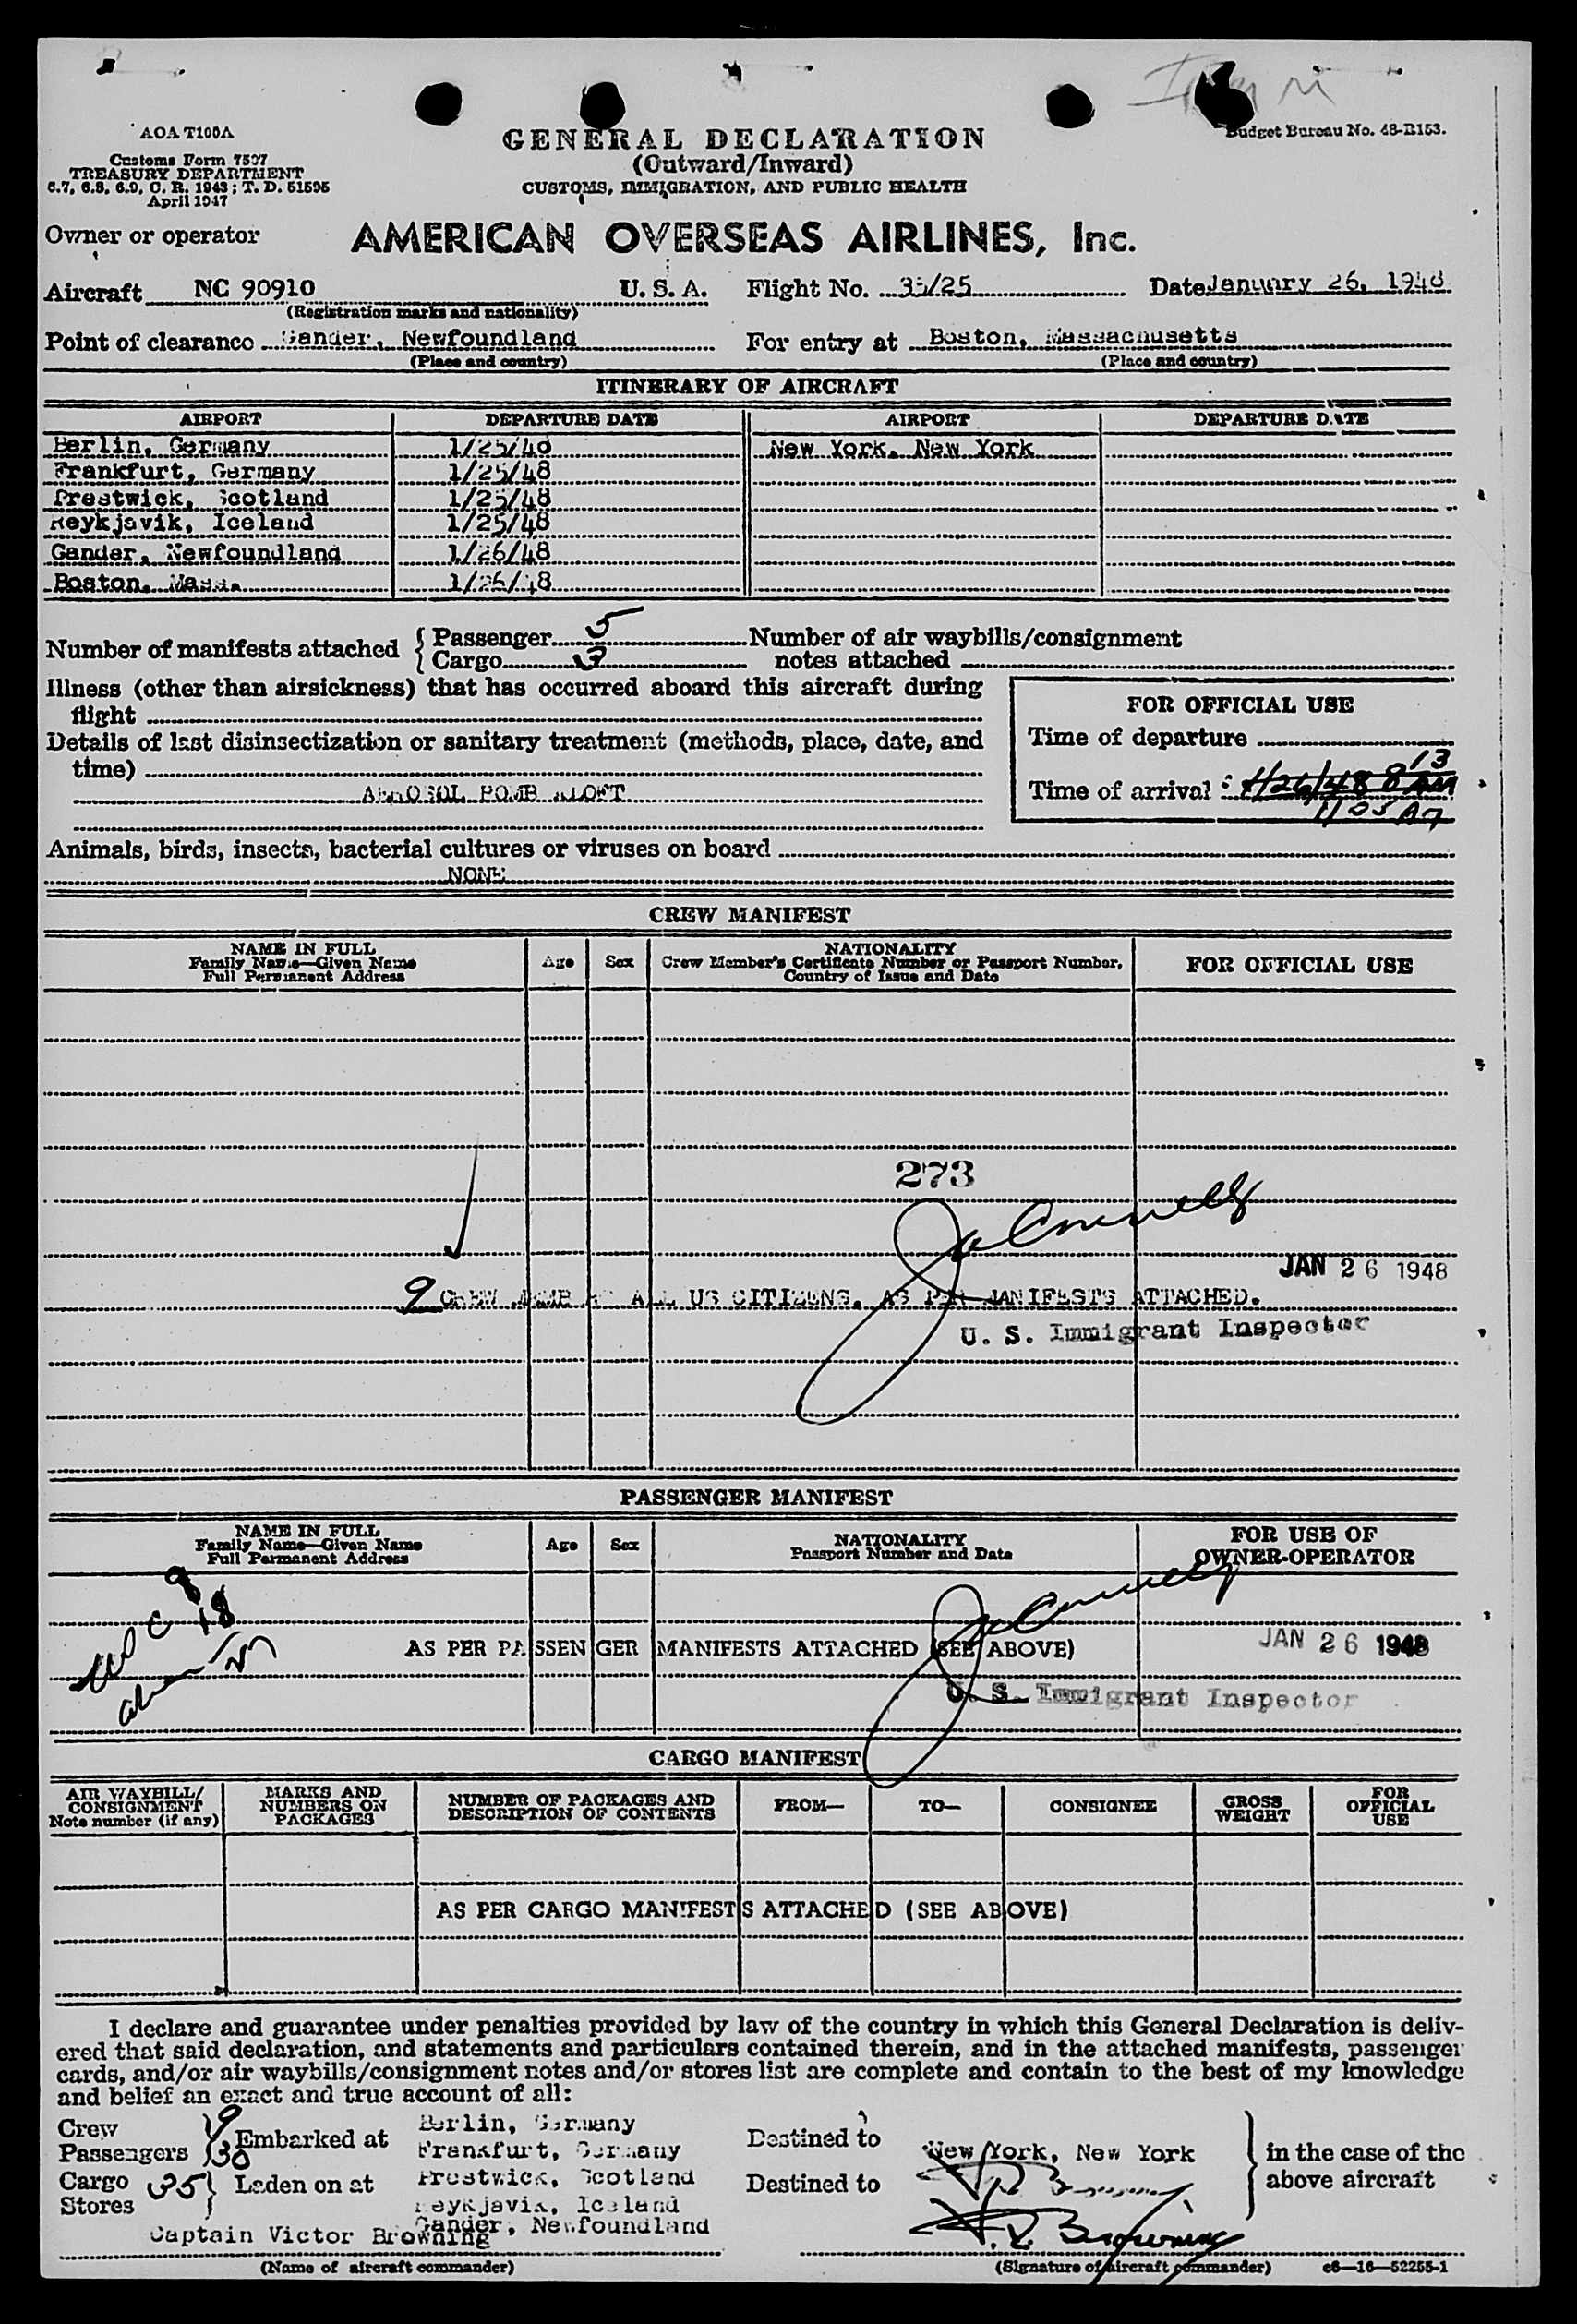 AOA T100A
Customs Form 7507
TREASURY DEPARTMENT
6.7, 6.8, 6.9, C. R. 1943; T. D. 51595
April 1947
GENERAL DECLARATION
(Outward/Inward)
CUSTOMS, IMMIGRATION, AND PUBLIC HEALTH
Budget Bureau No. 48-R153.
Owner or operator AMERICAN OVERSEAS AIRLINES, Inc.
Aircraft NC 90910 U. S. A. Flight No. 35/25 Date January 26, 1948
(Registration marks and nationality)
Point of clearance Gander, Newfoundland For entry at Boston, Massachusetts
(Place and country) (Place and country)
ITINERARY OF AIRCRAFT
AIRPORT DEPARTURE DATE AIRPORT DEPARTURE DATE
Berlin, Germany 1/25/48 New York, New York
Frankfurt, Germany 1/25/48
Prestwick, Scotland 1/25/48
Reykjavik, Iceland 1/25/48
Gander, Newfoundland 1/26/48
Boston, Mass. 1/26/48
Number of manifests attached { Passenger 5 Number of air waybills/consignment
Cargo 3 notes attached
Illness (other than airsickness) that has occurred aboard this aircraft during
flight
Details of last disinsectization or sanitary treatment (methods, place, date, and
time)
AEROSOL BOMB ALOFT
FOR OFFICIAL USE
Time of departure
Time of arrival : 1/26/48 8 13 AM
11 05 A
Animals, birds, insects, bacterial cultures or viruses on board
NONE
CREW MANIFEST
NAME IN FULL
Family Name—Given Name
Full Permanent Address
Age Sex
NATIONALITY
Crew Member's Certificate Number or Passport Number,
Country of Issue and Date
FOR OFFICIAL USE
273
JAN 26 1948
9 CREW MEMBERS ALL US CITIZENS, AS PER MANIFESTS ATTACHED.
U. S. Immigrant Inspector
PASSENGER MANIFEST
NAME IN FULL
Family Name—Given Name
Full Permanent Address
Age Sex
NATIONALITY
Passport Number and Date
FOR USE OF
OWNER-OPERATOR
AS PER PASSENGER MANIFESTS ATTACHED (SEE ABOVE)
JAN 26 1948
U. S. Immigrant Inspector
CARGO MANIFEST
AIR WAYBILL/
CONSIGNMENT
Note number (if any)
MARKS AND
NUMBERS ON
PACKAGES
NUMBER OF PACKAGES AND
DESCRIPTION OF CONTENTS
FROM— TO— CONSIGNEE
GROSS
WEIGHT
FOR
OFFICIAL
USE
AS PER CARGO MANIFESTS ATTACHED (SEE ABOVE)
I declare and guarantee under penalties provided by law of the country in which this General Declaration is deliv-
ered that said declaration, and statements and particulars contained therein, and in the attached manifests, passenger
cards, and/or air waybills/consignment notes and/or stores list are complete and contain to the best of my knowledge
and belief an exact and true account of all:
Crew 9
Passengers 30 } Embarked at
Cargo 35
Stores } Laden on at
Berlin, Germany
Frankfurt, Germany
Prestwick, Scotland
Reykjavik, Iceland
Gander, Newfoundland
Destined to
New York, New York
Destined to
in the case of the
above aircraft
Captain Victor Browning
V. R. Browning
(Name of aircraft commander) (Signature of aircraft commander) c6—16—52255-1